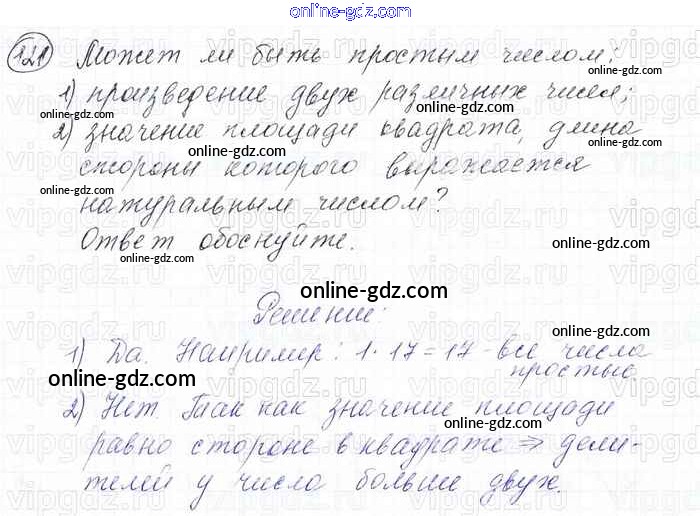 online-gdz.com
121 Может ли быть простым числом:
1) произведение двух различных чисел;
online-gdz.com online-gdz.com
2) значение площади квадрата, длина
online-gdz.com
стороны которого выражается
online-gdz.com online-gdz.com
натуральным числом?
Ответ обоснуйте.
online-gdz.com
online-gdz.com
online-gdz.com
Решение:
online-gdz.com
1) Да. Например: 1·17=17 - все числа
простые.
online-gdz.com
2) Нет. Так как значение площади
равно стороне в квадрате ⇒ дели-
телей у число больше двух.